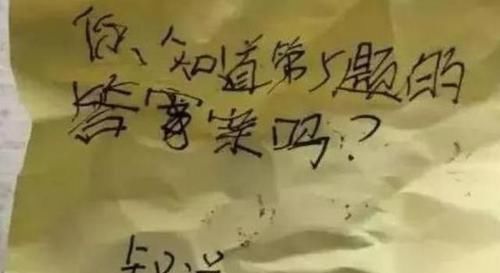 你知道第5题的
答案吗?